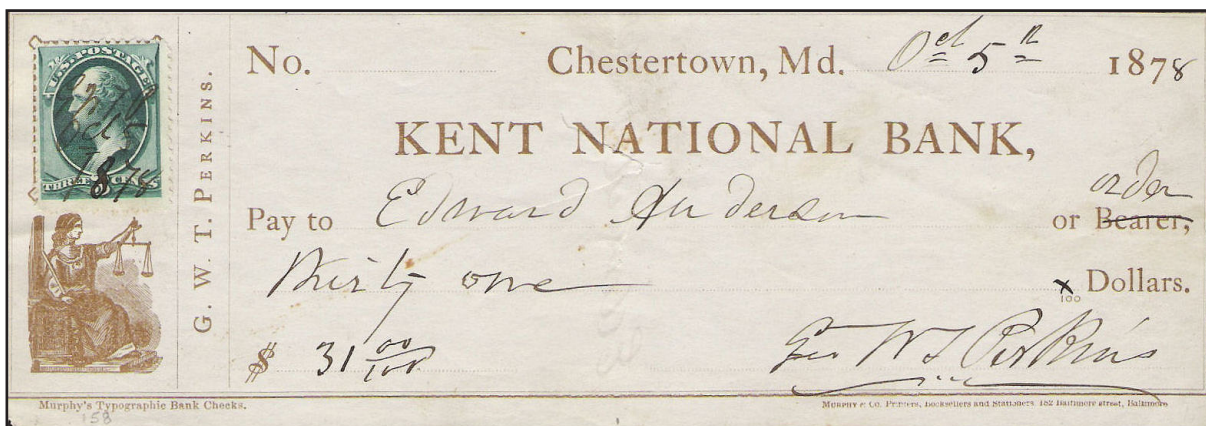 U.S. POSTAGE
THREE CENTS
1878
G. W. T. PERKINS.
No. Chestertown, Md. Oct 5th 1878
KENT NATIONAL BANK,
order
Pay to Edward Anderson or Bearer,
Thirty one x/100 Dollars.
$ 31 00/100 Geo W T Perkins
Murphy's Typographic Bank Checks. MURPHY & CO. Printers, Booksellers and Stationers. 182 Baltimore street, Baltimore
158